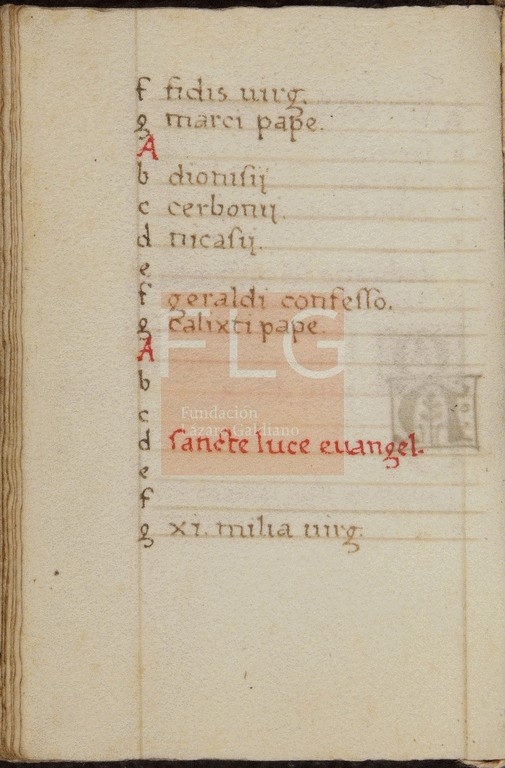 f fidis uirg.
g marci pape.
A
b dionisij
c cerbonij.
d nicasij.
e
f geraldi confesso.
g calixti pape.
A
b
c
d sancte luce euangel.
e
f
g xi. milia uirg.
FLG
Fundación
Lázaro Galdiano